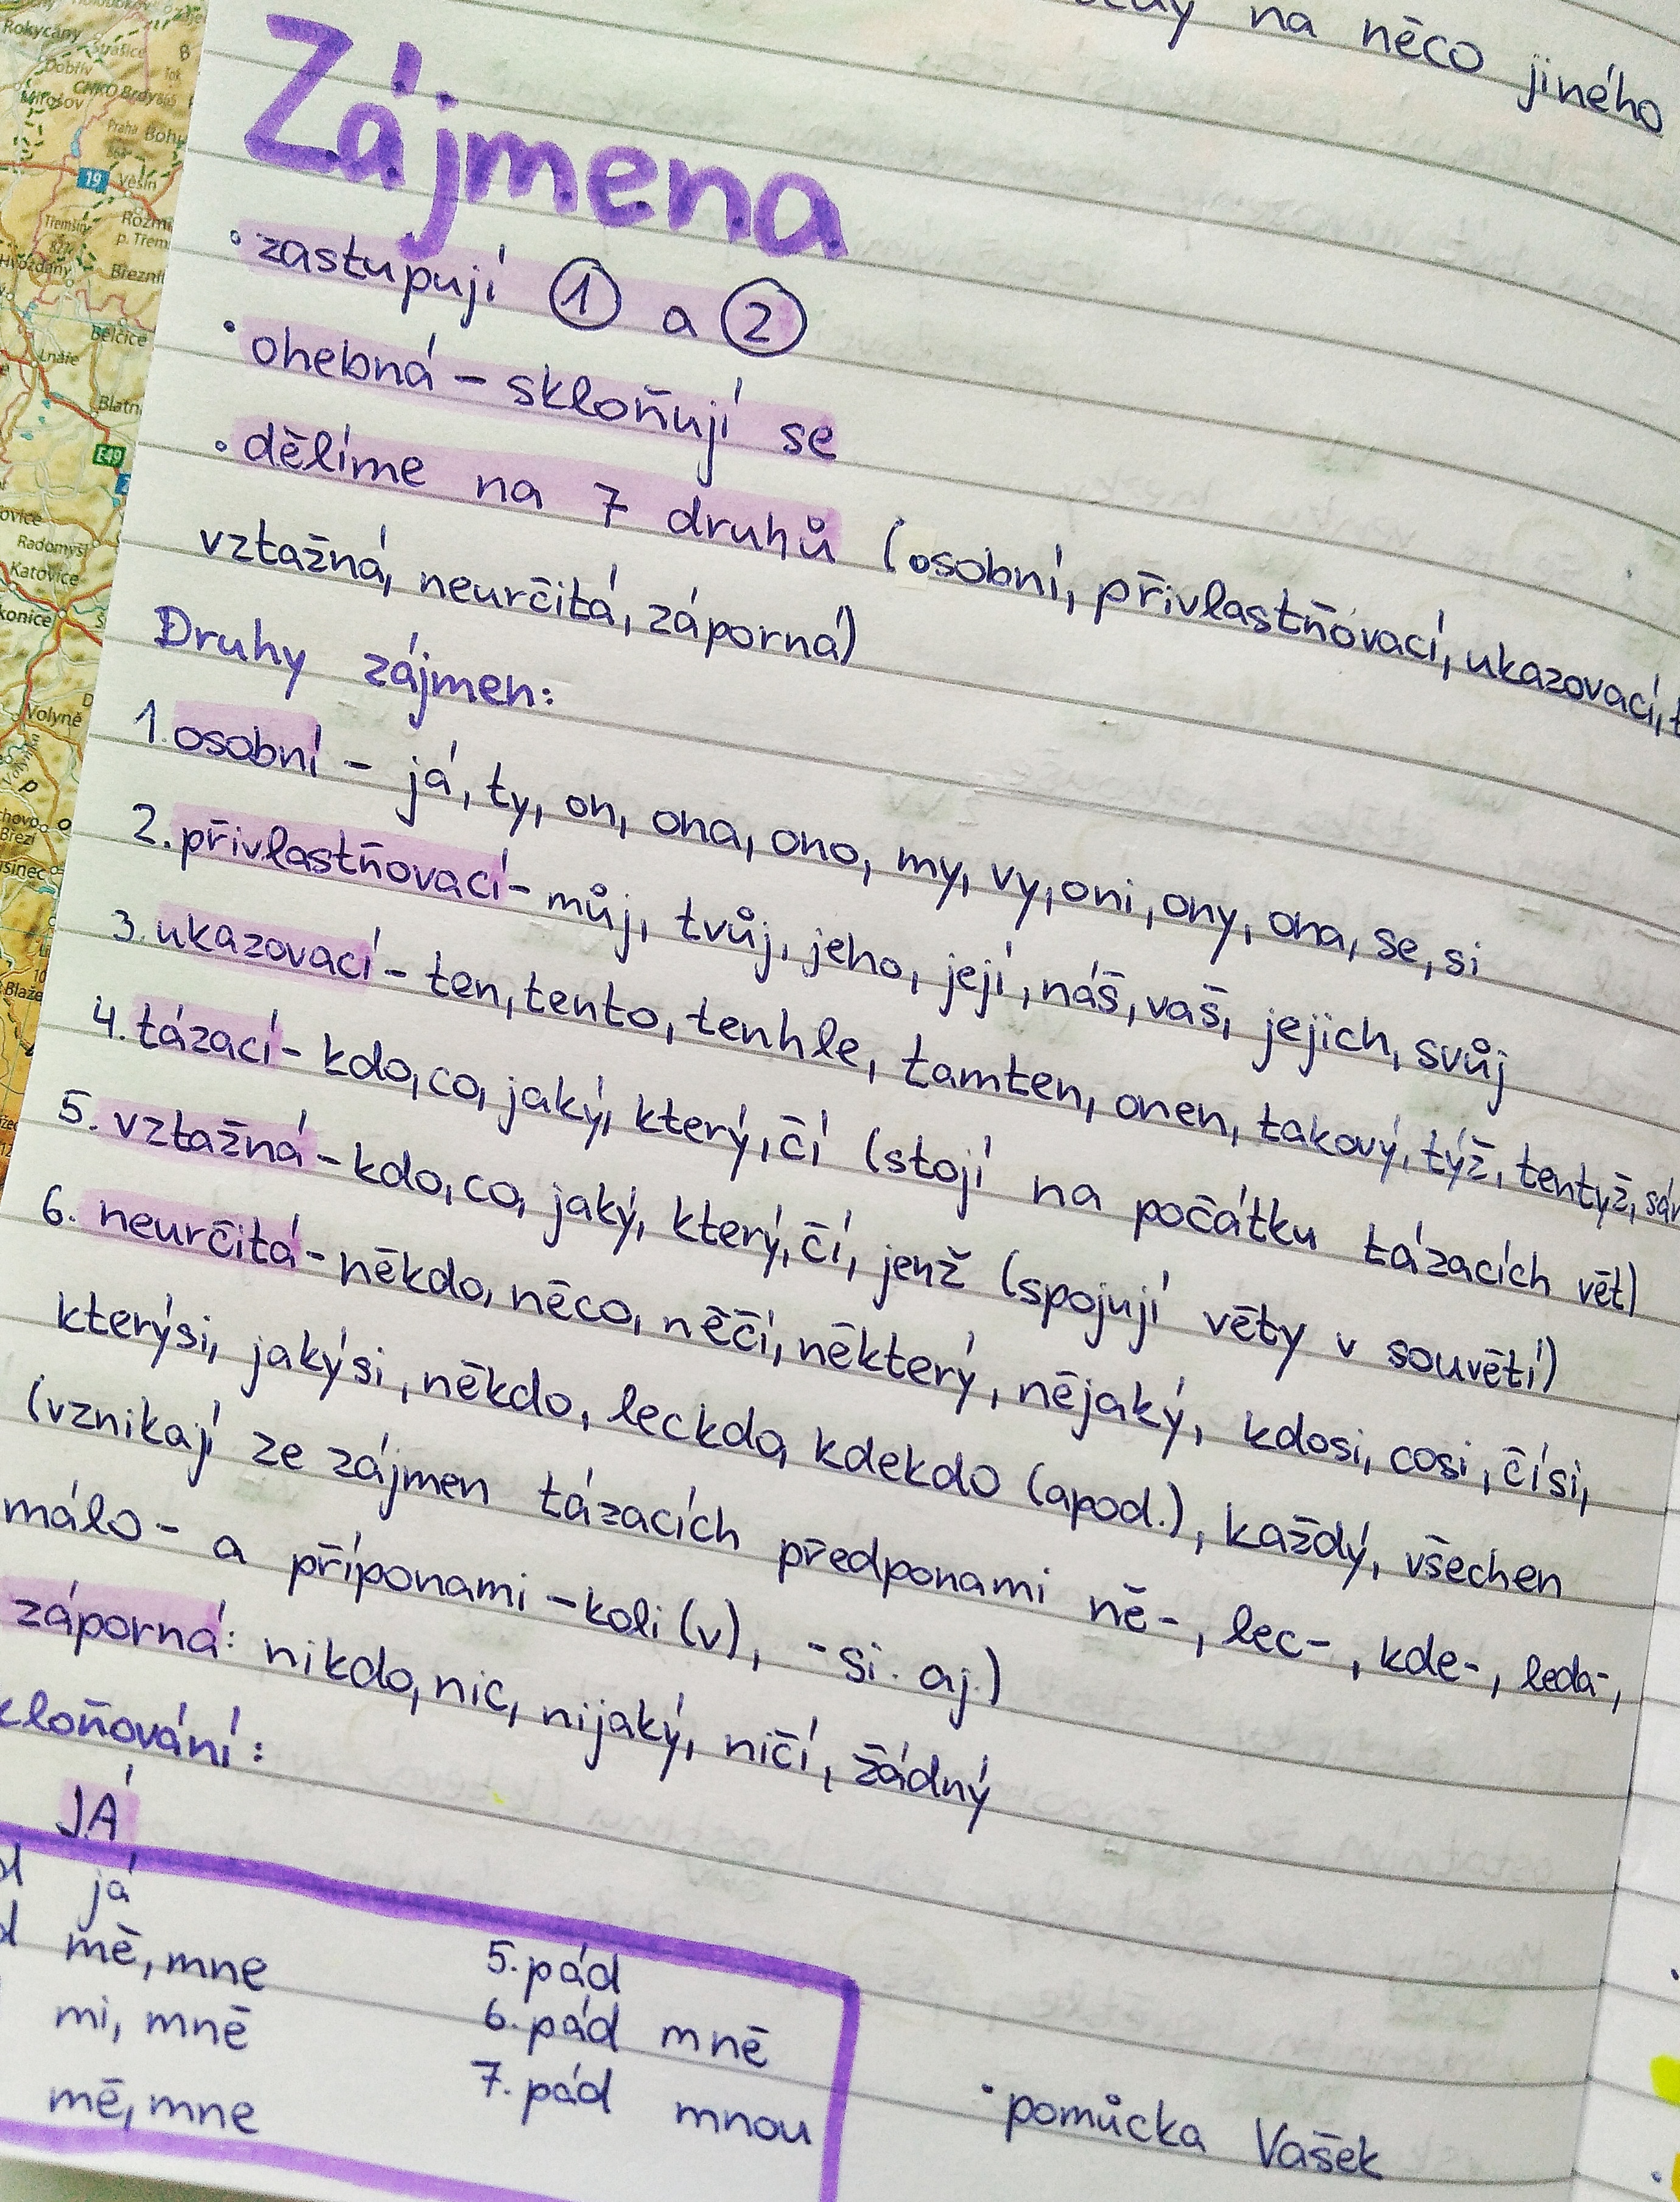 na něco jiného
Zájmena
• zastupují ① a ②
• ohebná – skloňují se
• dělíme na 7 druhů (osobní, přivlastňovací, ukazovací,
vztažná, neurčitá, záporná)
Druhy zájmen:
1. osobní – já, ty, on, ona, ono, my, vy, oni, ony, ona, se, si
2. přivlastňovací – můj, tvůj, jeho, její, náš, vaš, jejich, svůj
3. ukazovací – ten, tento, tenhle, tamten, onen, takový, týž, tentyž,
4. tázací – kdo, co, jaký, který, čí (stojí na počátku tázacích vět)
5. vztažná – kdo, co, jaký, který, čí, jenž (spojují věty v souvětí)
6. neurčitá – někdo, něco, něčí, některý, nějaký, kdosi, cosi, čísi,
kterýsi, jakýsi, někdo, leckdo, kdekdo (apod.), každý, všechen
(vznikají ze zájmen tázacích předponami ně-, lec-, kde-, leda-,
málo- a příponami -koli (v), -si. aj.)
záporná: nikdo, nic, nijaký, ničí, žádný
kloňování:
JÁ
já
mě, mne
mi, mně
mě, mne
5. pád
6. pád mně
7. pád mnou
• pomůcka Vašek
Rokycany
Strašice
Dobřív
Mirošov
CHKO Brdy
Praha
19
Věšín
Třemšín
Hvožďany
Březni
Bělčice
Lnáře
Blatn
E49
Radomyšl
Katovice
konice
Volyně